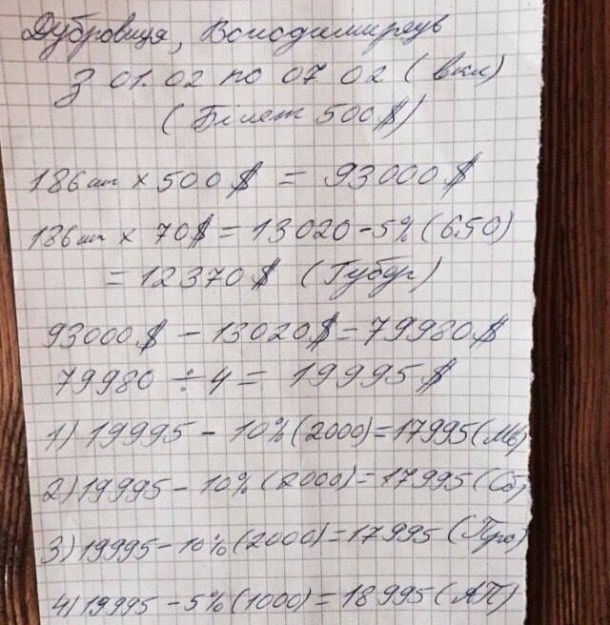 Дубровиця, Володимирец
З 01.02 по 07 02 (вкл)
(Білет 500$)
186 шт × 500$ = 93000$
186 шт × 70$ = 13020 - 5% (650)
= 12370$ (Губер)
93000$ - 13020$ = 79980$
79980 ÷ 4 = 19995$
1) 19995 - 10% (2000) = 17995 (Мв)
2) 19995 - 10% (2000) = 17995 (Сб)
3) 19995 - 10% (2000) = 17995 (Про)
4) 19995 - 5% (1000) = 18995 (АП)